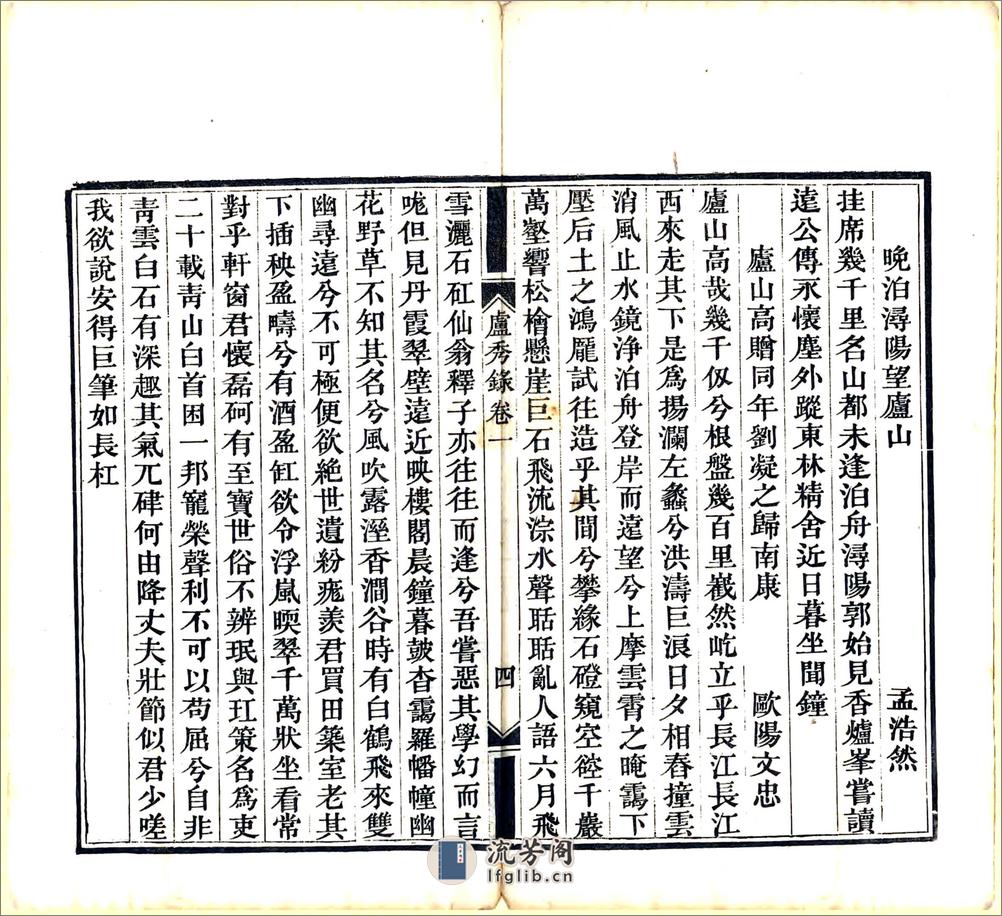 晚泊潯陽望廬山　孟浩然
挂席幾千里名山都未逢泊舟潯陽郭始見香爐峯嘗讀
遠公傳永懷塵外蹤東林精舍近日暮坐聞鐘
廬山高贈同年劉凝之歸南康　歐陽文忠
廬山高哉幾千仭兮根盤幾百里巀然屹立乎長江長江
西來走其下是爲揚瀾左蠡兮洪濤巨浪日夕相舂撞雲
消風止水鏡浄泊舟登岸而遠望兮上摩雲霄之晻靄下
壓后土之鴻厖試往造乎其間兮攀緣石磴窺空谾千巖
萬壑響松檜懸崖巨石飛流淙水聲聒聒亂人語六月飛
廬秀錄卷一　四
雪灑石矼仙翁釋子亦往往而逢兮吾嘗惡其學幻而言
哤但見丹霞翠壁遠近映樓閣晨鐘暮皷杳靄羅幡幢幽
花野草不知其名兮風吹露溼香澗谷時有白鶴飛來雙
幽尋遠兮不可極便欲絕世遺紛痝羨君買田築室老其
下插秧盈疇兮有酒盈缸欲令浮嵐暎翠千萬狀坐看常
對乎軒窗君懷磊砢有至寶世俗不辨珉與玒策名爲吏
二十載靑山白首困一邦寵榮聲利不可以苟屈兮自非
靑雲白石有深趣其氣兀硉何由降丈夫壯節似君少嗟
我欲說安得巨筆如長杠
流芳阁
lfglib.cn